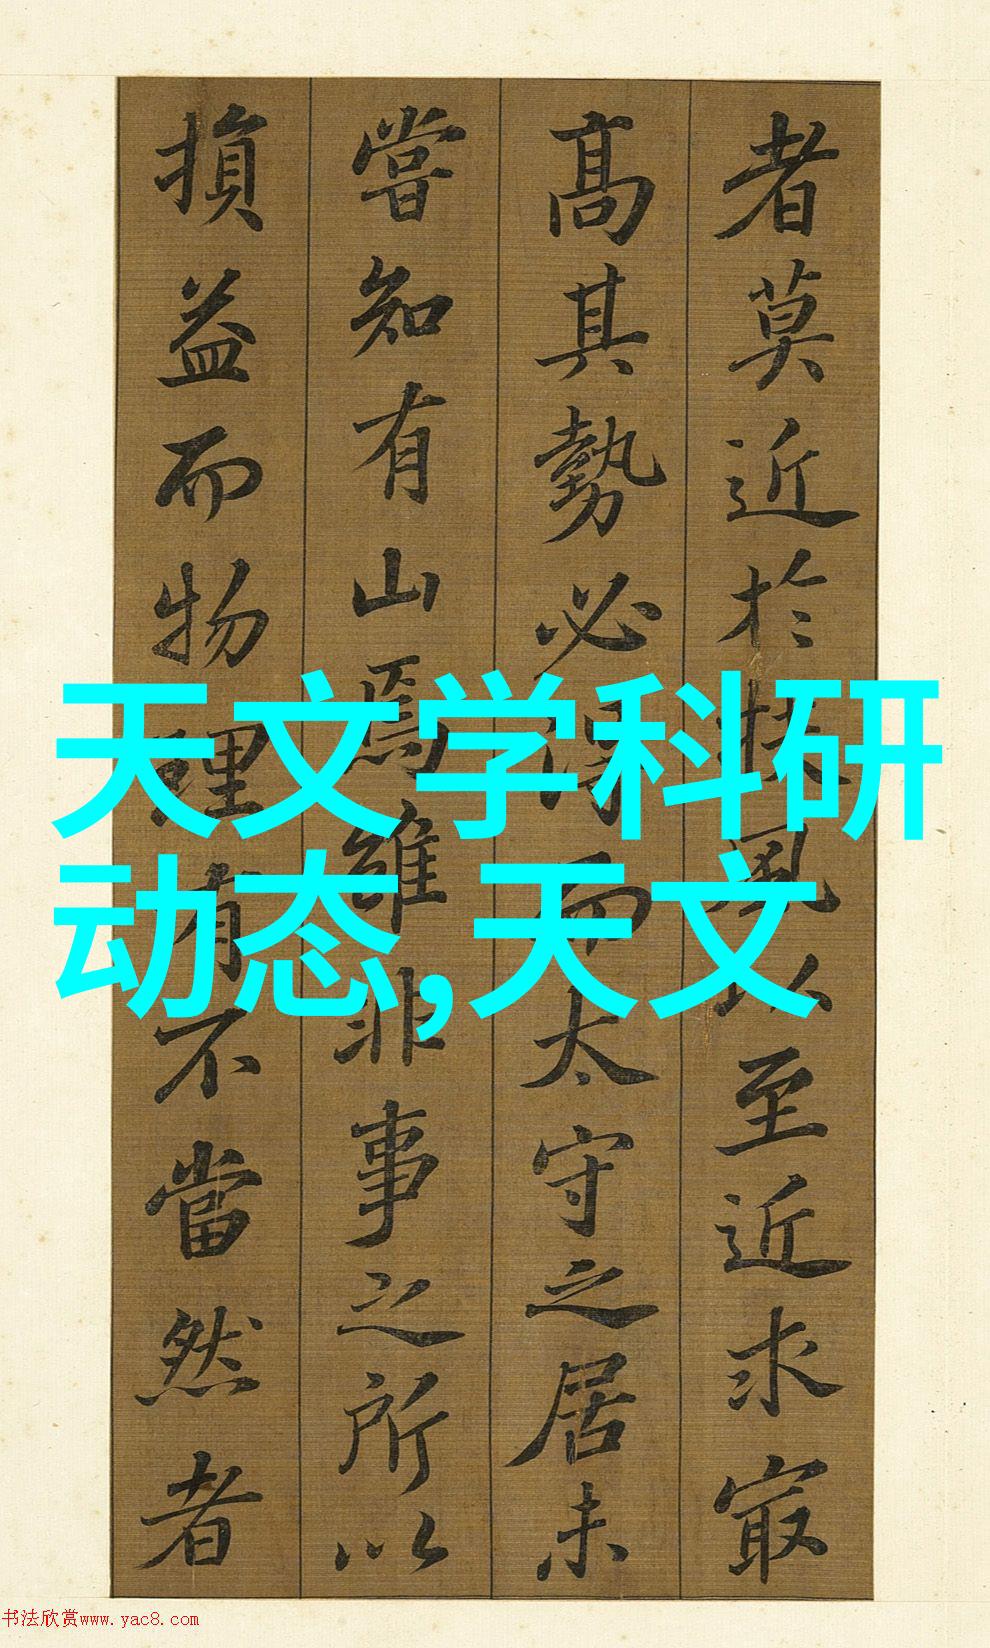 者莫近於扶風以至近求最
髙其勢必得而太守之居未
嘗知有山焉維非事之所以
損益而物理有不當然者
天文学科研
动态,天文
书法欣赏www.yac8.com